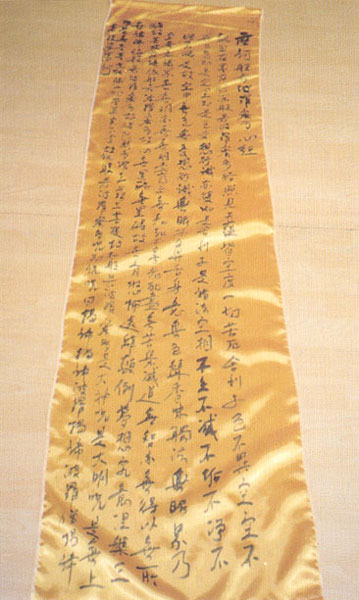 摩訶般若波羅蜜多心經
觀自在菩薩行深般若波羅蜜多時照見五蘊皆空度一切苦厄舍利子色不異空空不
異色色即是空空即是色受想行識亦復如是舍利子是諸法空相不生不滅不垢不淨不
增不減是故空中無色無受想行識無眼耳鼻舌身意無色聲香味觸法無眼界乃
至無意識界無無明亦無無明盡乃至無老死亦無老死盡無苦集滅道無智亦無得以無所
得故菩提薩埵依般若波羅蜜多故心無罣礙無罣礙故無有恐怖遠離顛倒夢想究竟涅槃三
世諸佛依般若波羅蜜多故得阿耨多羅三藐三菩提故知般若波羅蜜多是大神咒是大明咒是無上
咒是無等等咒能除一切苦真實不虛故說般若波羅蜜多咒即說咒曰揭諦揭諦波羅揭諦波羅僧揭諦